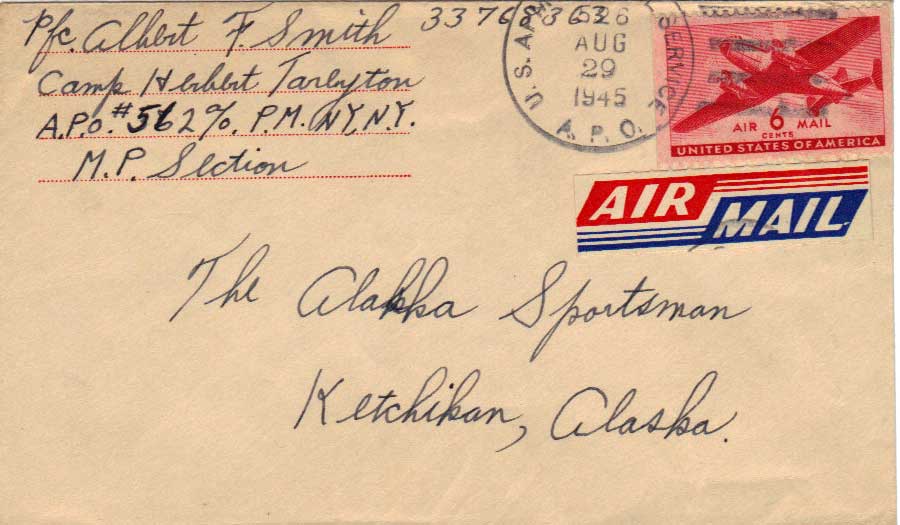 Pfc. Albert F. Smith 33768363
Camp Herbert Tareyton
A.P.O. #562 c/o. P.M. N.Y, N.Y.
M.P. Section
526
AUG
29
1945
U.S. A
SERVICE
A. P. O.
AIR 6 MAIL
CENTS
UNITED STATES OF AMERICA
AIR MAIL
The Alakka Sportsman
Ketchikan, Alaska.